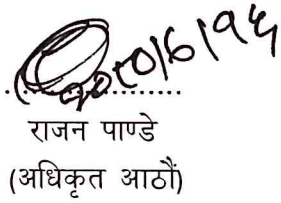 २०८०।६।१५
राजन पाण्डे
(अधिकृत आठौं)